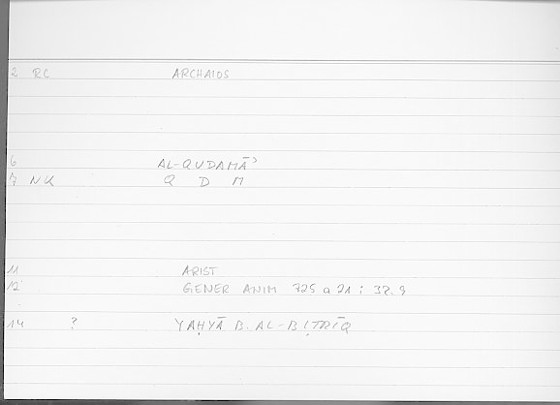 2 RC ARCHAIOS
6 AL-QUDAMĀʾ
7 NU Q D M
11 ARIST
12 GENER ANIM 725 a 21 : 32.9
14 ? YAḤYĀ B. AL-BIṬRĪQ